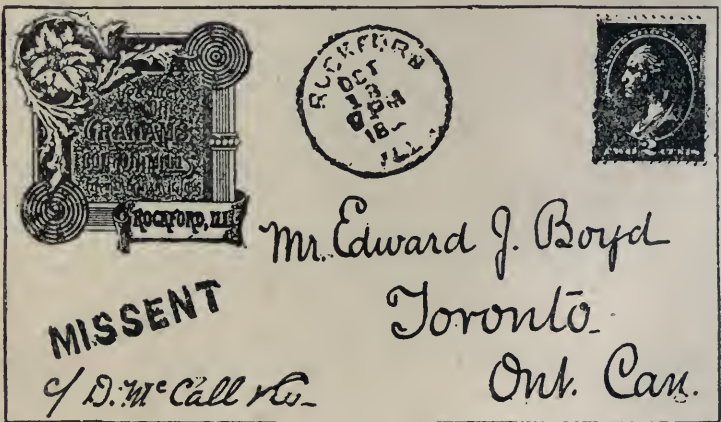 GRAHAM'S
COTTON MILLS
ROCKFORD, ILL
ROCKFORD
OCT
8 PM
18
ILL.
TWO 2 CENTS
Mr. Edward J. Boyd
Toronto
Ont. Can.
MISSENT
c/ D. McCall & Co.